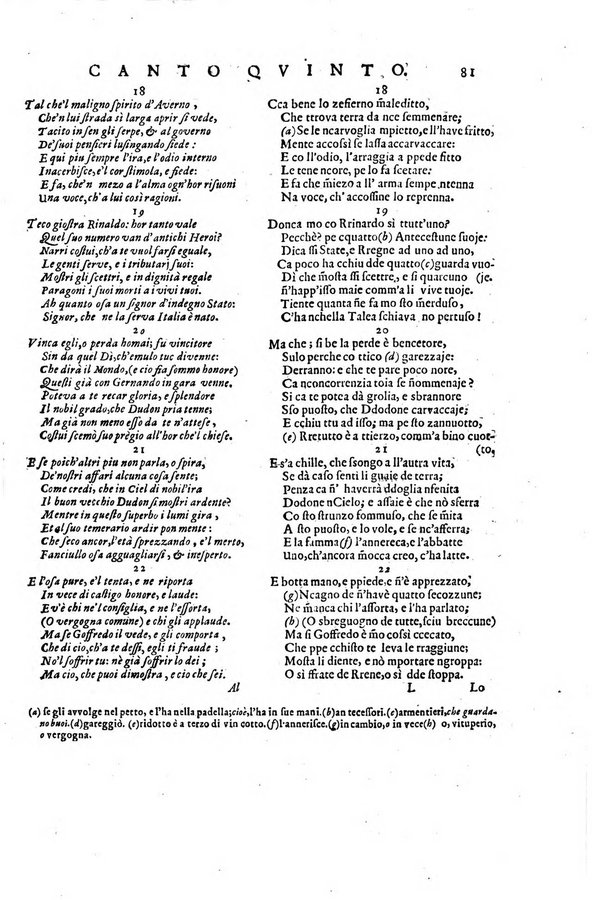 CANTO QVINTO. 81
18
Tal che'l maligno spirito d'Averno,
Che'n lui strada sì larga aprir si vede,
Tacito in sen gli serpe, & al governo
De' suoi pensieri lusingando siede:
E qui più sempre l'ira, e l'odio interno
Inacerbisce, e'l cor stimola, e fiede:
E fa, che'n mezo a l'alma ogn'hor risuoni
Una voce, ch'a lui così ragioni.
19
Teco giostra Rinaldo: hor tanto vale
Quel suo numero van d'antichi Heroi?
Narri costui, ch'a te vuol farsi eguale,
Le genti serve, e i tributari suoi:
Mostri gli scettri, e in dignità regale
Paragoni i suoi morti a i vivi tuoi.
Ah quanto osa un signor d'indegno Stato:
Signor, che ne la serva Italia è nato.
20
Vinca egli, o perda homai; fu vincitore
Sin da quel Dì, ch'emulo tuc divenne:
Che dirà il Mondo, (e ciò fia sommo honore)
Questi già con Gernando in gara venne.
Poteva a te recar gloria, e splendore
Il nobil grado, che Dudon pria tenne;
Ma già non meno esso da te n'attese,
Costui scemò suo prègio all'hor che'l chiese.
21
E se poich'altri piu non parla, o spira,
De'nostri affari alcuna cosa sente;
Come credi, che in Ciel di nobil'ira
Il buon vecchio Dudon si mostri ardente?
Mentre in questo superbo i lumi gira,
Et al suo temerario ardir pon mente:
Che seco ancor, l'età sprezzando, e'l merto,
Fanciullo osa agguagliarsi, & inesperto.
22
E l'osa pure, e'l tenta, e ne riporta
In vece di castigo honore, e laude:
Ev'è chi ne'l consiglia, e ne l'essorta,
(O vergogna comune) e chi gli applaude.
Ma se Goffredo il vede, e gli comporta,
Che di cio, ch'a te dessi, egli ti fraude;
No'l soffrir tu: nè già soffrir lo dei;
Ma cio, che puoi dimostra, e cio che sei.
Al
18
Cca bene lo zefierno malleditto,
Che ttrova terra da nce semmenare;
(a) Se le ncarvoglia mpietto, e ll'have fritto,
Mente accossì se lassa accarvaccare:
E co ll'odio, l'arraggia a ppede fitto
Le tene ncore, pe lo fa scetare:
E fa che mmiezo a ll'arma sempe ntenna
Na voce, ch'accossine lo reprenna.
19
Donca mo co Rrinardo sì ttutt'uno?
Pecchè? pe cquatto (b) Antecestune suoje:
Dica ssi State, e Rregne ad uno ad uno,
Ca poco ha cchiu dde quatto (c) guarda vuo-
Dì che mostà ssi scettre, e ssì ghiacuno (je.
n'happ'isso maie comm'a li vive tuoje.
Tiente quanta ñe fa mo sto merduso,
C'ha nchella Talea schiava no pertuso!
20
Ma che; si be la perde è bencetore,
Sulo perchè co ttico (d) garezzaje:
Derranno: e che te pare poco nore,
Ca nconcorrenzia toia se ñommenaje?
Si ca te potea dà grolia, e sbrannore
Sso puosto, che Ddodone carvaccaje;
E cchiu ttu ad isso; ma pe sto zannuotto,
(e) Rretutto è a ttierzo, comm'a bino cuot-
21 (to,
E s'a chille, che songo a ll'autra vita,
Se dà caso senti li guaje de terra;
Penza ca ñ'haverrà ddoglia nfenita
Dodone nCielo; e assaje è che nò sferra
Co sto strunzo fommuso, che se mita
A sto puosto, e lo vole, e se nc'afferra;
E la famma (f) l'annereca, e l'abbatte
Uno, ch'ancora mocca creo, e'ha latte.
22
E botta mano, e ppiede, e ñ'è apprezzato,
(g) Ncagno de ñ'havè quatto secozzune;
Nce stanno chi l'assorta, e l'ha parlato;
(h) O sbreguogno de tutte, sciu breccune)
Mà sì Goffredo è mo cossì cecato,
Che ppe cchisto te leva le rraggiune;
Mosta li diente, e nò mportare ngroppa:
O sì ffrate de Rrene, o sì dde stoppa.
L Lo
(a) se gli avvolge nel petto, e l'ha nella padella; cioè, l'ha in sue mani. (b) antecessori. (c) armentieri, che guarda-
no buoi. (d) gareggiò. (e) ridotto è a terzo di vin cotto. (f) l'annerisce. (g) in cambio, o in vece (h) o, vituperio,
o vergogna.